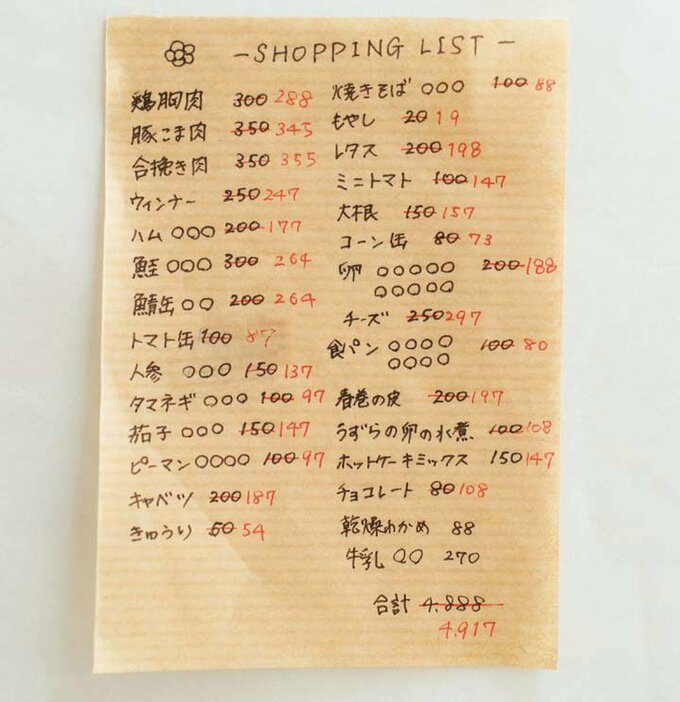 -SHOPPING LIST-
鶏胸肉 300 288
豚こま肉 350 345
合挽き肉 350 355
ウィンナー 250 247
ハム ○○○ 200 177
鮭 ○○○ 300 264
鯖缶 ○○ 200 264
トマト缶 100 87
人参 ○○○ 150 137
タマネギ ○○○ 100 97
茄子 ○○○ 150 147
ピーマン ○○○○ 100 97
キャベツ 200 187
きゅうり 50 54
焼きそば ○○○ 100 88
もやし 20 19
レタス 200 198
ミニトマト 100 147
大根 150 157
コーン缶 80 73
卵 ○○○○○ 200 188
○○○○○
チーズ 250 297
食パン ○○○○ 100 80
○○○○
春巻の皮 200 197
うずらの卵の水煮 100 108
ホットケーキミックス 150 147
チョコレート 80 108
乾燥わかめ 88
牛乳 ○○ 270
合計 4,888
4,917